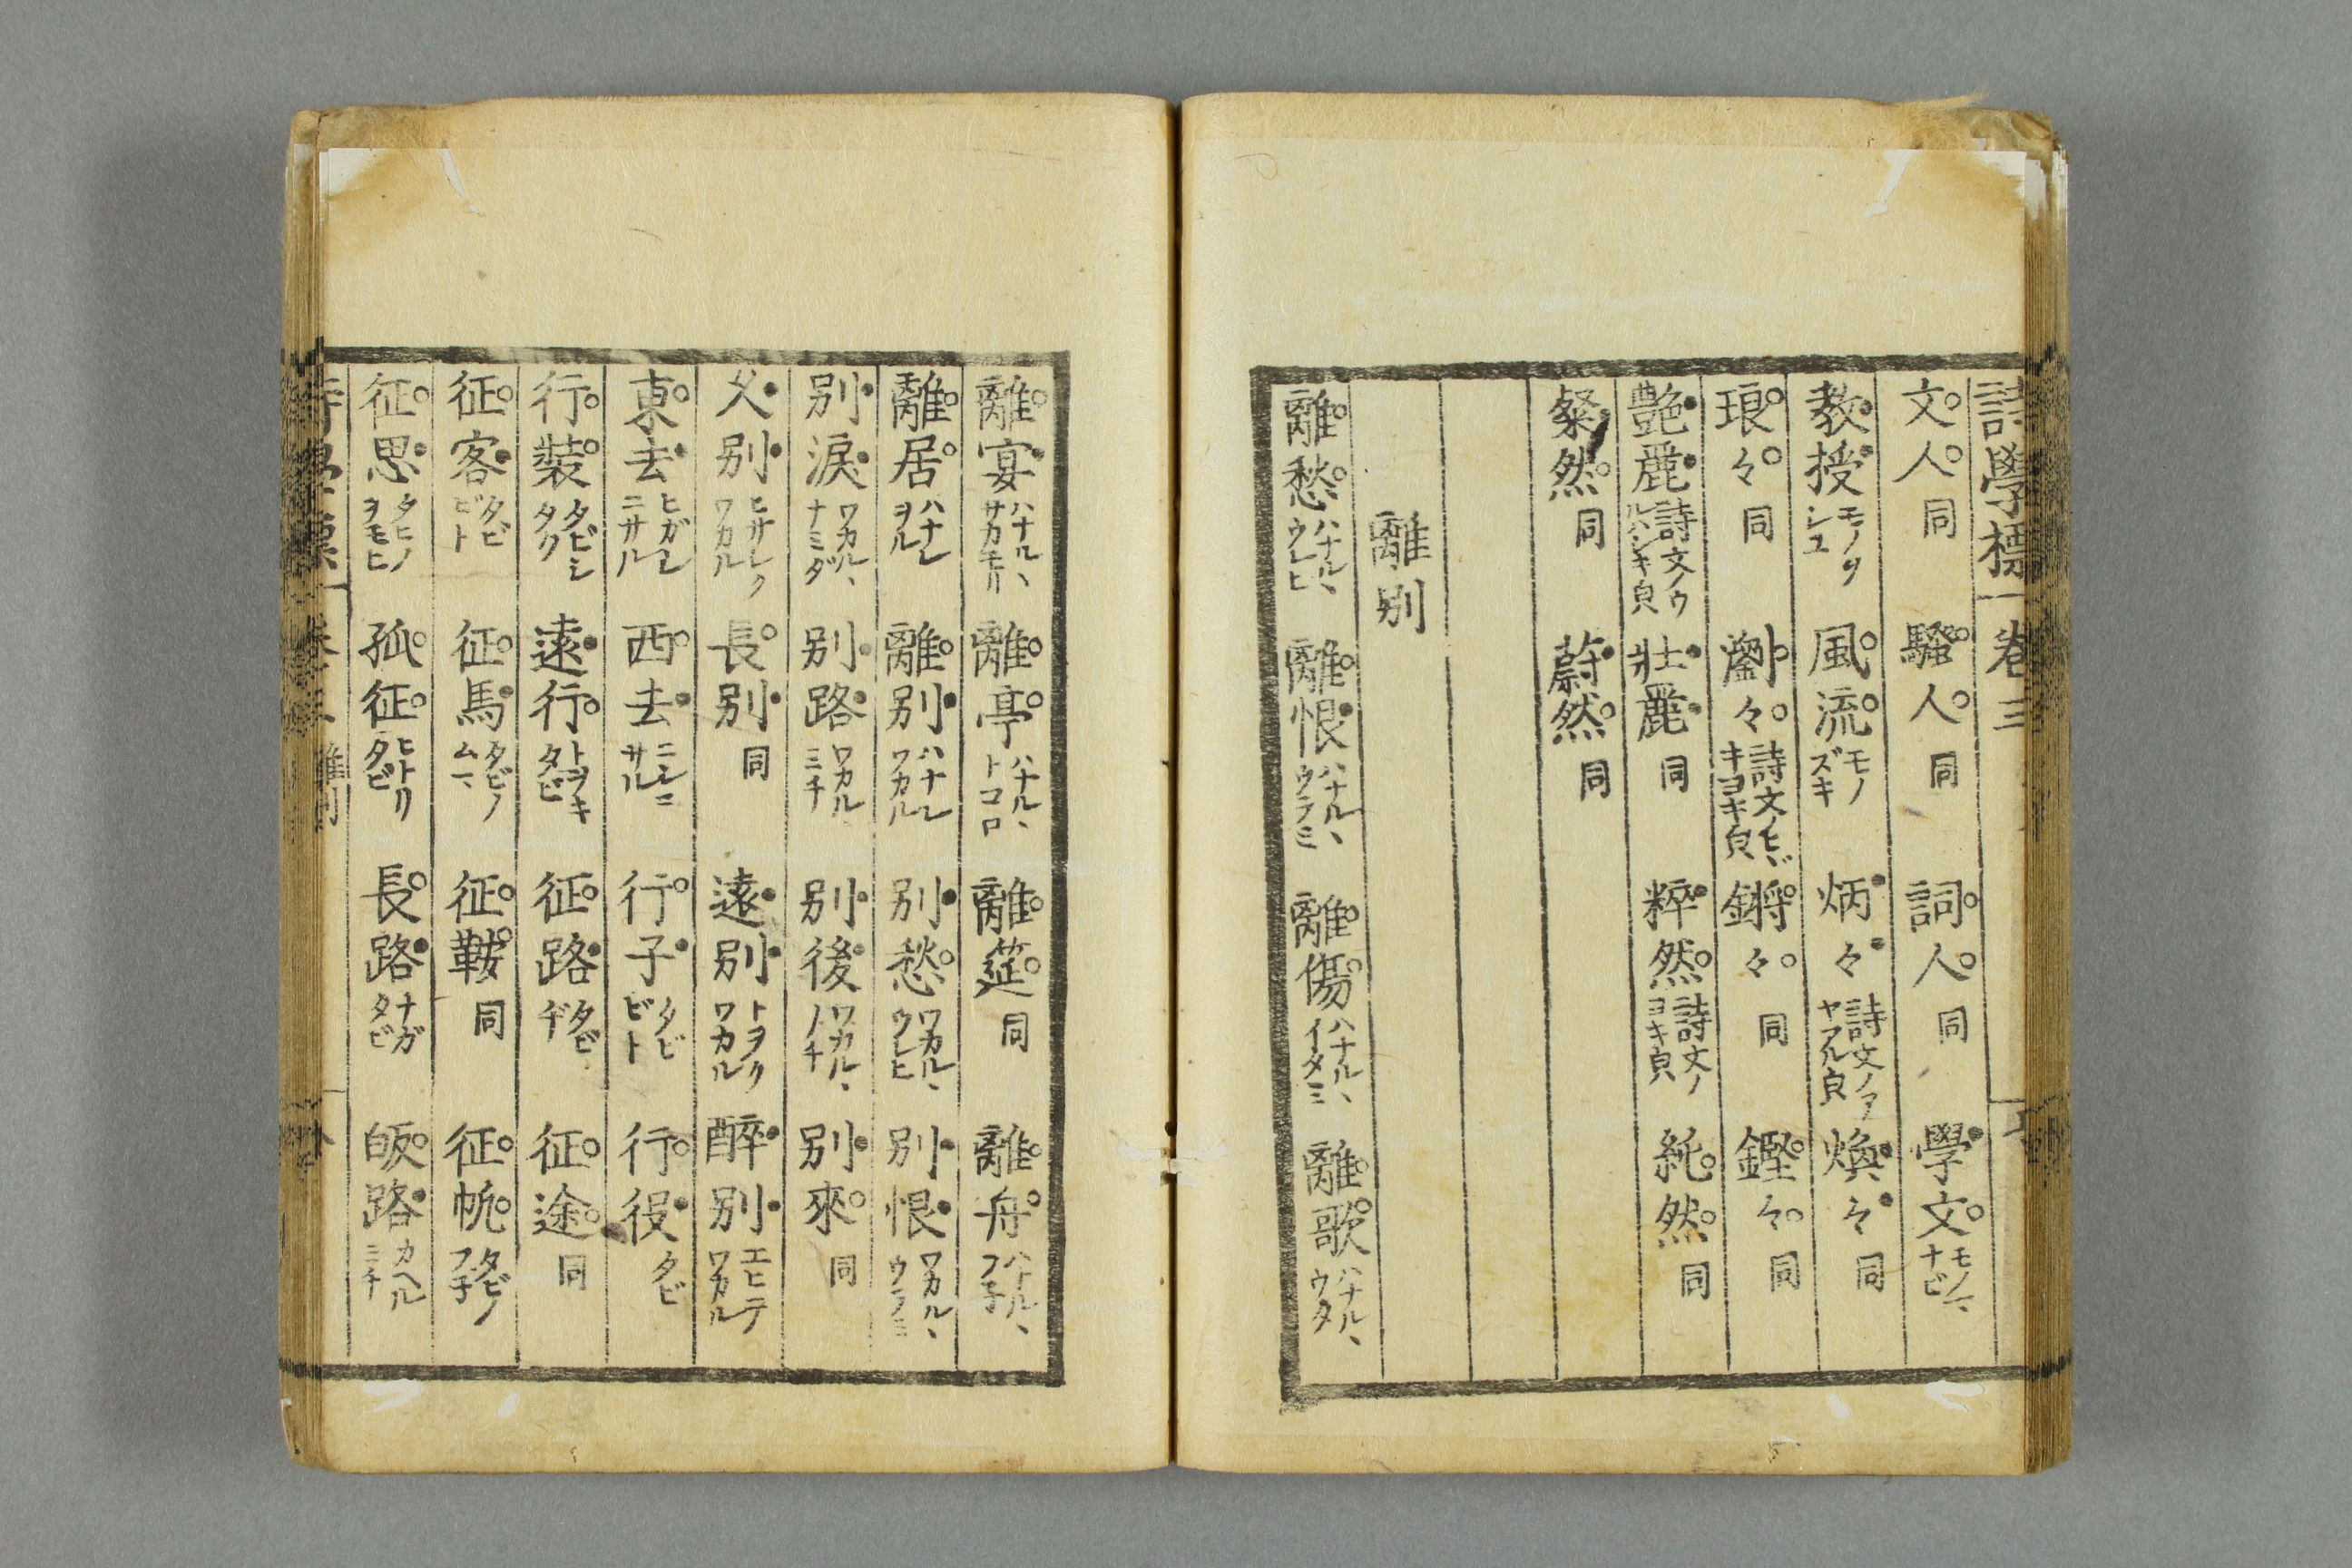 詩學標 卷三
文人 同 騷人 同 詞人 同 學文 モノマナビ
教授 モノヲシユ 風流 モノズキ 炳々 詩文ノアヤアル皃 煥々 同
琅々 同 瀏々 詩文ノヒヾキヨキ皃 鏘々 同 鏗々 同
艶麗 詩文ノウルハシキ皃 壯麗 同 粹然 詩文ノヨキ皃 純然 同
粲然 同 蔚然 同
離別
離愁 ハナルヽウレヒ 離恨 ハナルヽウラミ 離傷 ハナルヽイタミ 離歌 ハナルヽウタ
離宴 ハナルヽサカモリ 離亭 ハナルヽトコロ 離筵 同 離舟 ハナルヽフ子
離居 ハナレヲル 離別 ハナレワカル 別愁 ワカルヽウレヒ 別恨 ワカルヽウラミ
別淚 ワカルヽナミダ 別路 ワカルヽミチ 別後 ワカルヽノチ 別來 同
久別 ヒサシクワカル 長別 同 遠別 トヲクワカル 醉別 エヒテワカル
東去 ヒガシニサル 西去 ニシニサル 行子 タビビト 行役 タビ
行裝 タビシタク 遠行 トヲキタビ 征路 タビヂ 征途 同
征客 タビビト 征馬 タビノムマ 征鞍 同 征帆 タビノフ子
征思 タビノヲモヒ 孤征 ヒトリタビ 長路 ナガタビ 皈路 カヘルミチ
離別